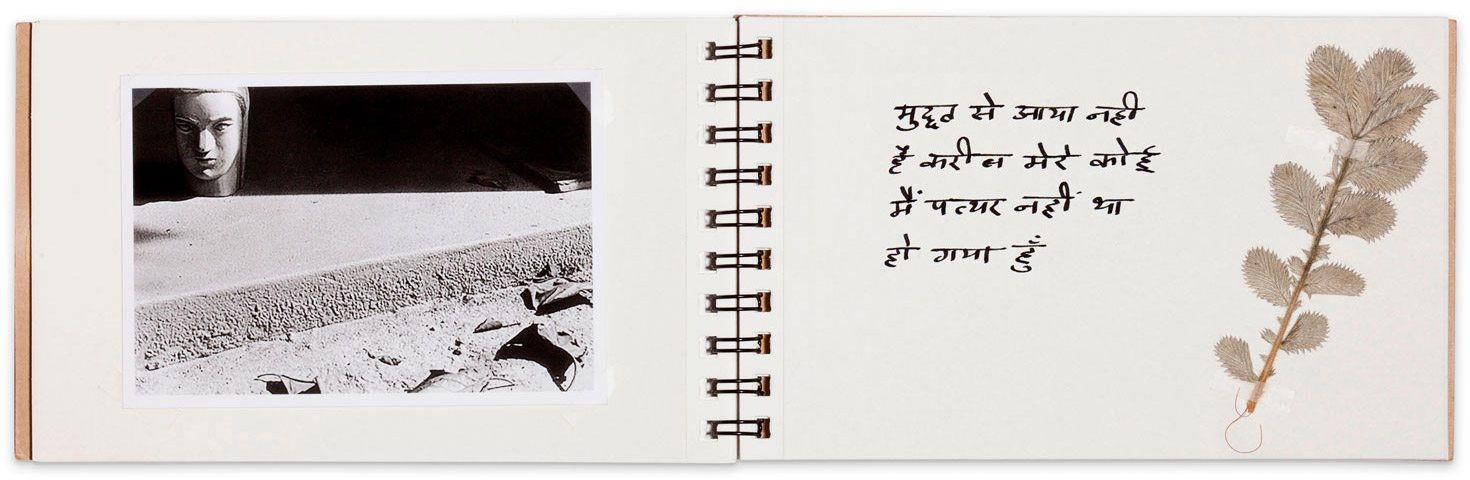 मुद्दत से आया नही
है करीब मेरे कोई
मैं पत्थर नहीं था
हो गया हूँ